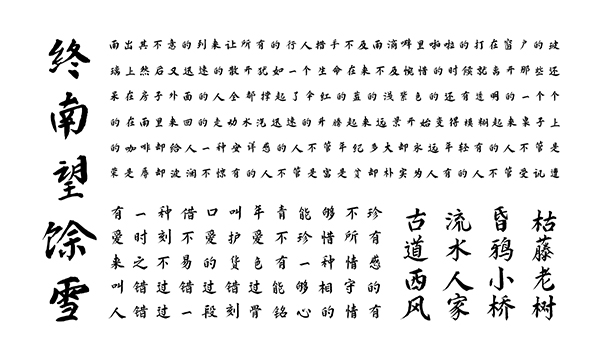 终南望馀雪
雨出其不意的到来让所有的行人措手不及雨滴噼里啪啦的打在窗户的玻
璃上然后又迅速的散开犹如一个生命在来不及惋惜的时候就离开那些还
呆在房子外面的人全都撑起了伞红的蓝的浅紫色的还有透明的一个个
的在雨里来回的走动水汽迅速的升腾起来远景开始变得模糊起来桌子上
的咖啡却给人一种安详感的人不管年纪多大却永远年轻有的人不管是
荣是辱却波澜不惊有的人不管是富是贫却朴实为人有的人不管受讥遭
有一种借口叫年青能够不珍
爱时刻不爱护爱不珍惜所有
来之不易的货色有一种情感
叫错过错过错过能够相守的
人错过一段刻骨铭心的情有
枯藤老树
昏鸦小桥
流水人家
古道西风